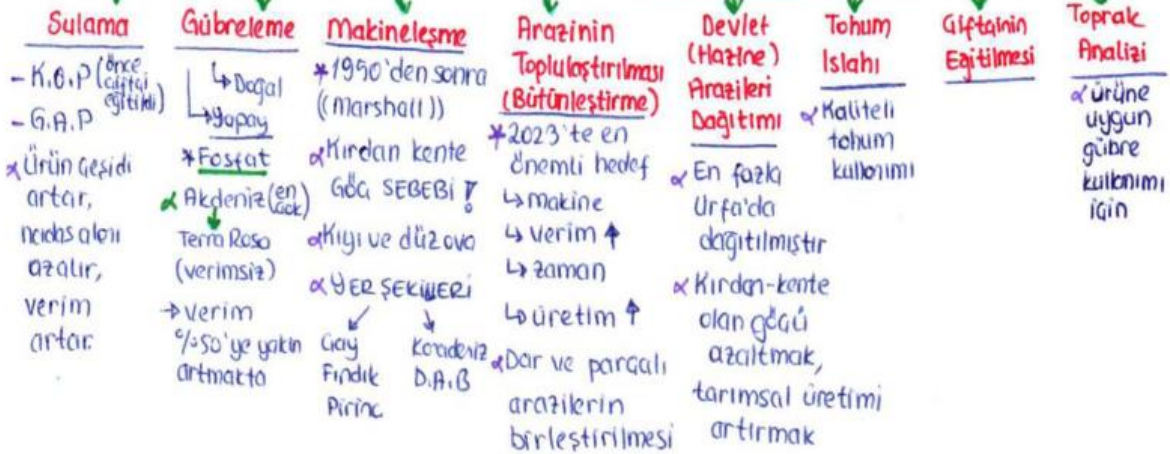 Sulama
- K.O.P (önce çiftçi eğitildi)
- G.A.P
α Ürün çeşidi
artar,
nadas alanı
azalır,
verim
artar.
Gübreleme
↳ Doğal
↳ Yapay
* Fosfat
α Akdeniz (en çok)
Terra Rosa
(verimsiz)
→ verim
%50'ye yakın
artmakta
Makineleşme
* 1950'den sonra
((Marshall))
α Kırdan kente
GÖÇ SEBEBİ !
α Kıyı ve düz ova
α YER ŞEKİLLERİ
Çay
Fındık
Pirinç
Karadeniz
D.A.B
Arazinin
Toplulaştırılması
(Bütünleştirme)
* 2023'te en
önemli hedef
↳ makine
↳ verim ↑
↳ zaman
↳ üretim ↑
α Dar ve parçalı
arazilerin
birleştirilmesi
Devlet
(Hazine)
Arazileri
Dağıtımı
α En fazla
Urfa'da
dağıtılmıştır
α Kırdan-kente
olan göçü
azaltmak,
tarımsal üretimi
artırmak
Tohum
Islahı
α Kaliteli
tohum
kullanımı
Çiftçinin
Eğitilmesi
Toprak
Analizi
α ürüne
uygun
gübre
kullanımı
için